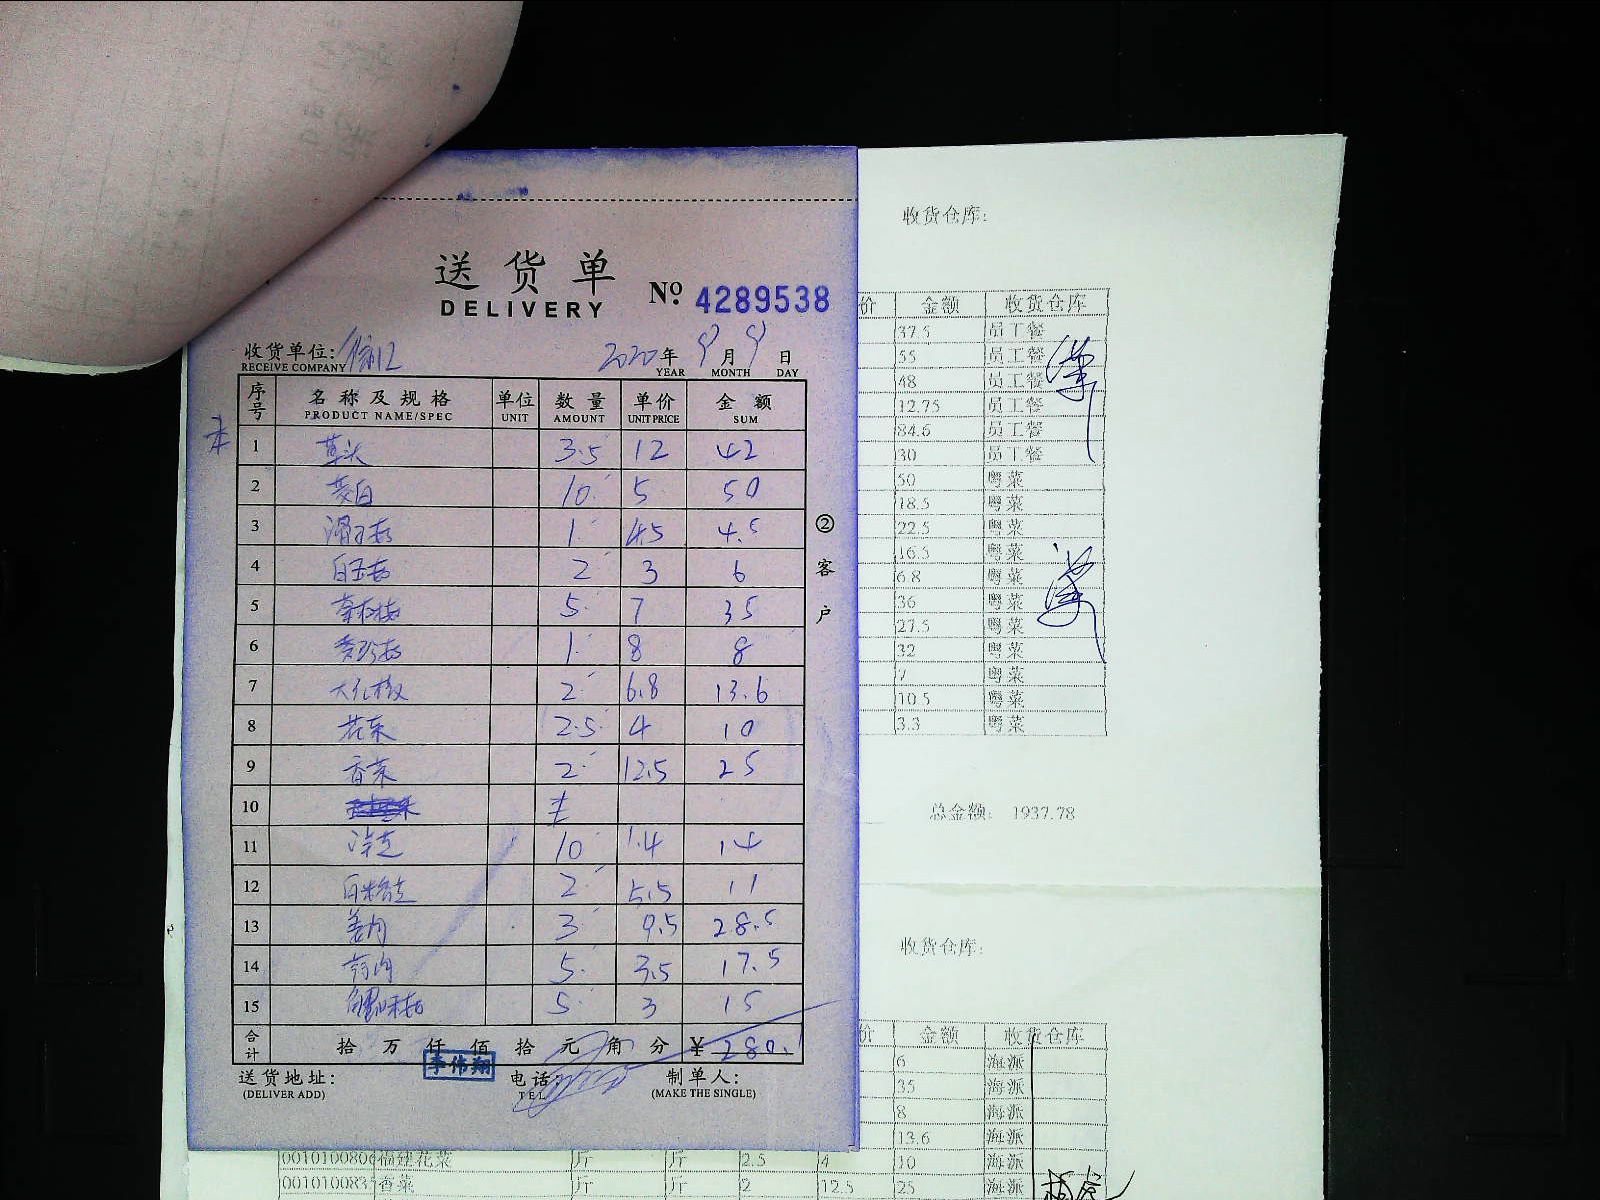 送货单
DELIVERY
№ 4289538
收货单位:
RECEIVE COMPANY
2020年 9月 9日
YEAR MONTH DAY
序号 名称及规格 单位 数量 单价 金额
PRODUCT NAME/SPEC UNIT AMOUNT UNIT PRICE SUM
1 草头 3.5 12 42
2 茭白 10 5 50
3 滑子菇 1 4.5 4.5
4 白玉菇 2 3 6
5 5 7 35
6 秀珍菇 1 8 8
7 大红椒 2 6.8 13.6
8 花菜 2.5 4 10
9 香菜 2 12.5 25
10
11 10 1.4 14
12 2 5.5 11
13 姜肉 3 9.5 28.5
14 5 3.5 17.5
15 5 3 15
合计 拾万仟佰拾元角分 ¥ 280.1
李伟翔
送货地址: 电话: 制单人:
(DELIVER ADD) TEL (MAKE THE SINGLE)
② 客户
收货仓库:
价 金额 收货仓库
37.5 员工餐
55 员工餐
48 员工餐
12.75 员工餐
84.6 员工餐
30 员工餐
50 粤菜
18.5 粤菜
22.5 粤菜
16.5 粤菜
6.8 粤菜
36 粤菜
27.5 粤菜
32 粤菜
7 粤菜
10.5 粤菜
3.3 粤菜
总金额: 1937.78
收货仓库:
价 金额 收货仓库
6 海派
35 海派
8 海派
13.6 海派
0010100806 福建花菜 斤 斤 2.5 4 10 海派
001010083 香菜 斤 斤 2 12.5 25 海派